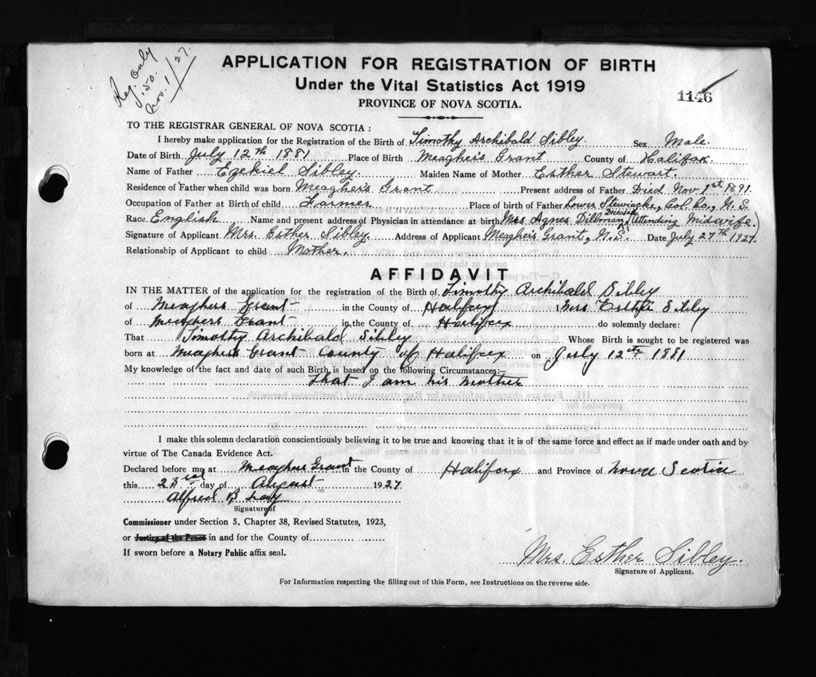 Reg. only
.50.
Nov. 1/27.
APPLICATION FOR REGISTRATION OF BIRTH
Under the Vital Statistics Act 1919
PROVINCE OF NOVA SCOTIA.
1146
TO THE REGISTRAR GENERAL OF NOVA SCOTIA :
I hereby make application for the Registration of the Birth of Timothy Archibald Sibley Sex Male.
Date of Birth July 12th 1881 Place of Birth Meagher's Grant County of Halifax
Name of Father Ezekiel Sibley. Maiden Name of Mother Esther Stewart.
Residence of Father when child was born Meagher's Grant Present address of Father Died Nov. 1st 1891.
Occupation of Father at Birth of child Farmer Place of birth of Father Lower Stewiacke, Col. Co., N. S.
Race. English Name and present address of Physician in attendance at birth Mrs Agnes Dillman Attending Midwife.
Signature of Applicant Mrs. Esther Sibley. Address of Applicant Meagher's Grant, N. S. Date July 27th 1927.
Relationship of Applicant to child Mother.
AFFIDAVIT
IN THE MATTER of the application for the registration of the Birth of Timothy Archibald Sibley
of Meaghers Grant in the County of Halifax I Mrs Esther Sibley
of Meaghers Grant in the County of Halifax do solemnly declare:
That Timothy Archibald Sibley Whose Birth is sought to be registered was
born at Meaghers Grant County of Halifax on July 12th 1881
My knowledge of the fact and date of such Birth is based on the following Circumstances:—
that I am his Mother
I make this solemn declaration conscientiously believing it to be true and knowing that it is of the same force and effect as if made under oath and by
virtue of The Canada Evidence Act.
Declared before me at Meaghers Grant in the County of Halifax and Province of Nova Scotia
this 23rd day of August 1927
Alfred B Lay
Signature of
Commissioner under Section 5, Chapter 38, Revised Statutes, 1923,
or Justice of the Peace in and for the County of
If sworn before a Notary Public affix seal.
Mrs. Esther Sibley.
Signature of Applicant.
For Information respecting the filling out of this Form, see Instructions on the reverse side.